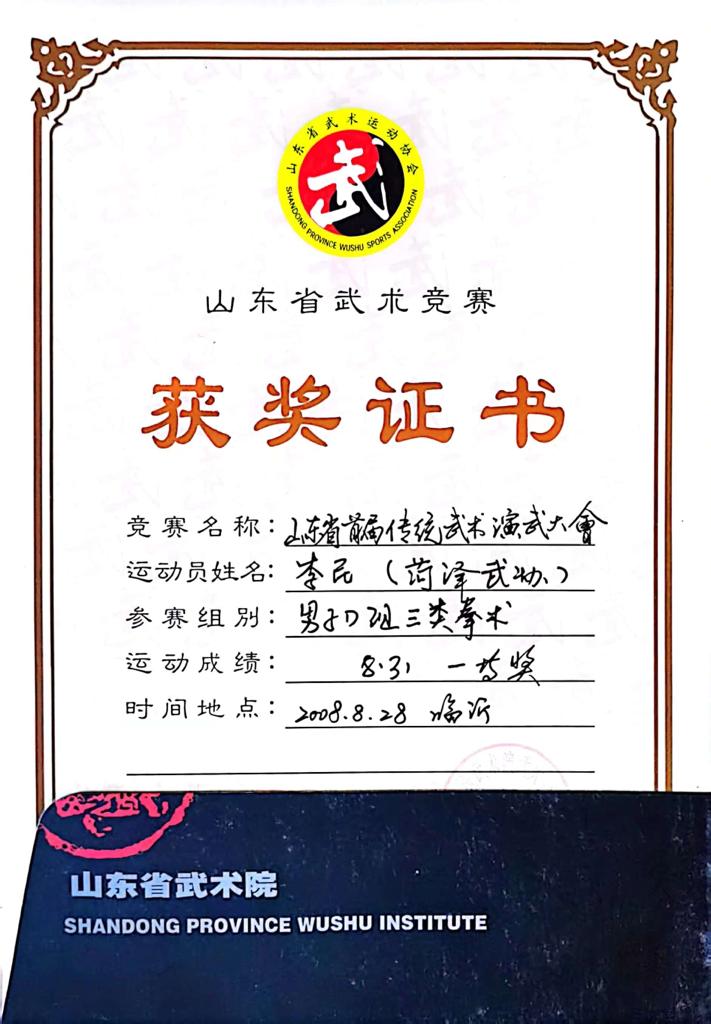 山东省武术运动协会
SHANDONG PROVINCE WUSHU SPORTS ASSOCIATION
武
山东省武术竞赛
获奖证书
竞赛名称：山东省首届传统武术演武大會
运动员姓名：李民（菏泽武协）
参赛组别：男子D组三类拳术
运动成绩：8.31 一等奖
时间地点：2008.8.28 临沂
山东省武术院
SHANDONG PROVINCE WUSHU INSTITUTE